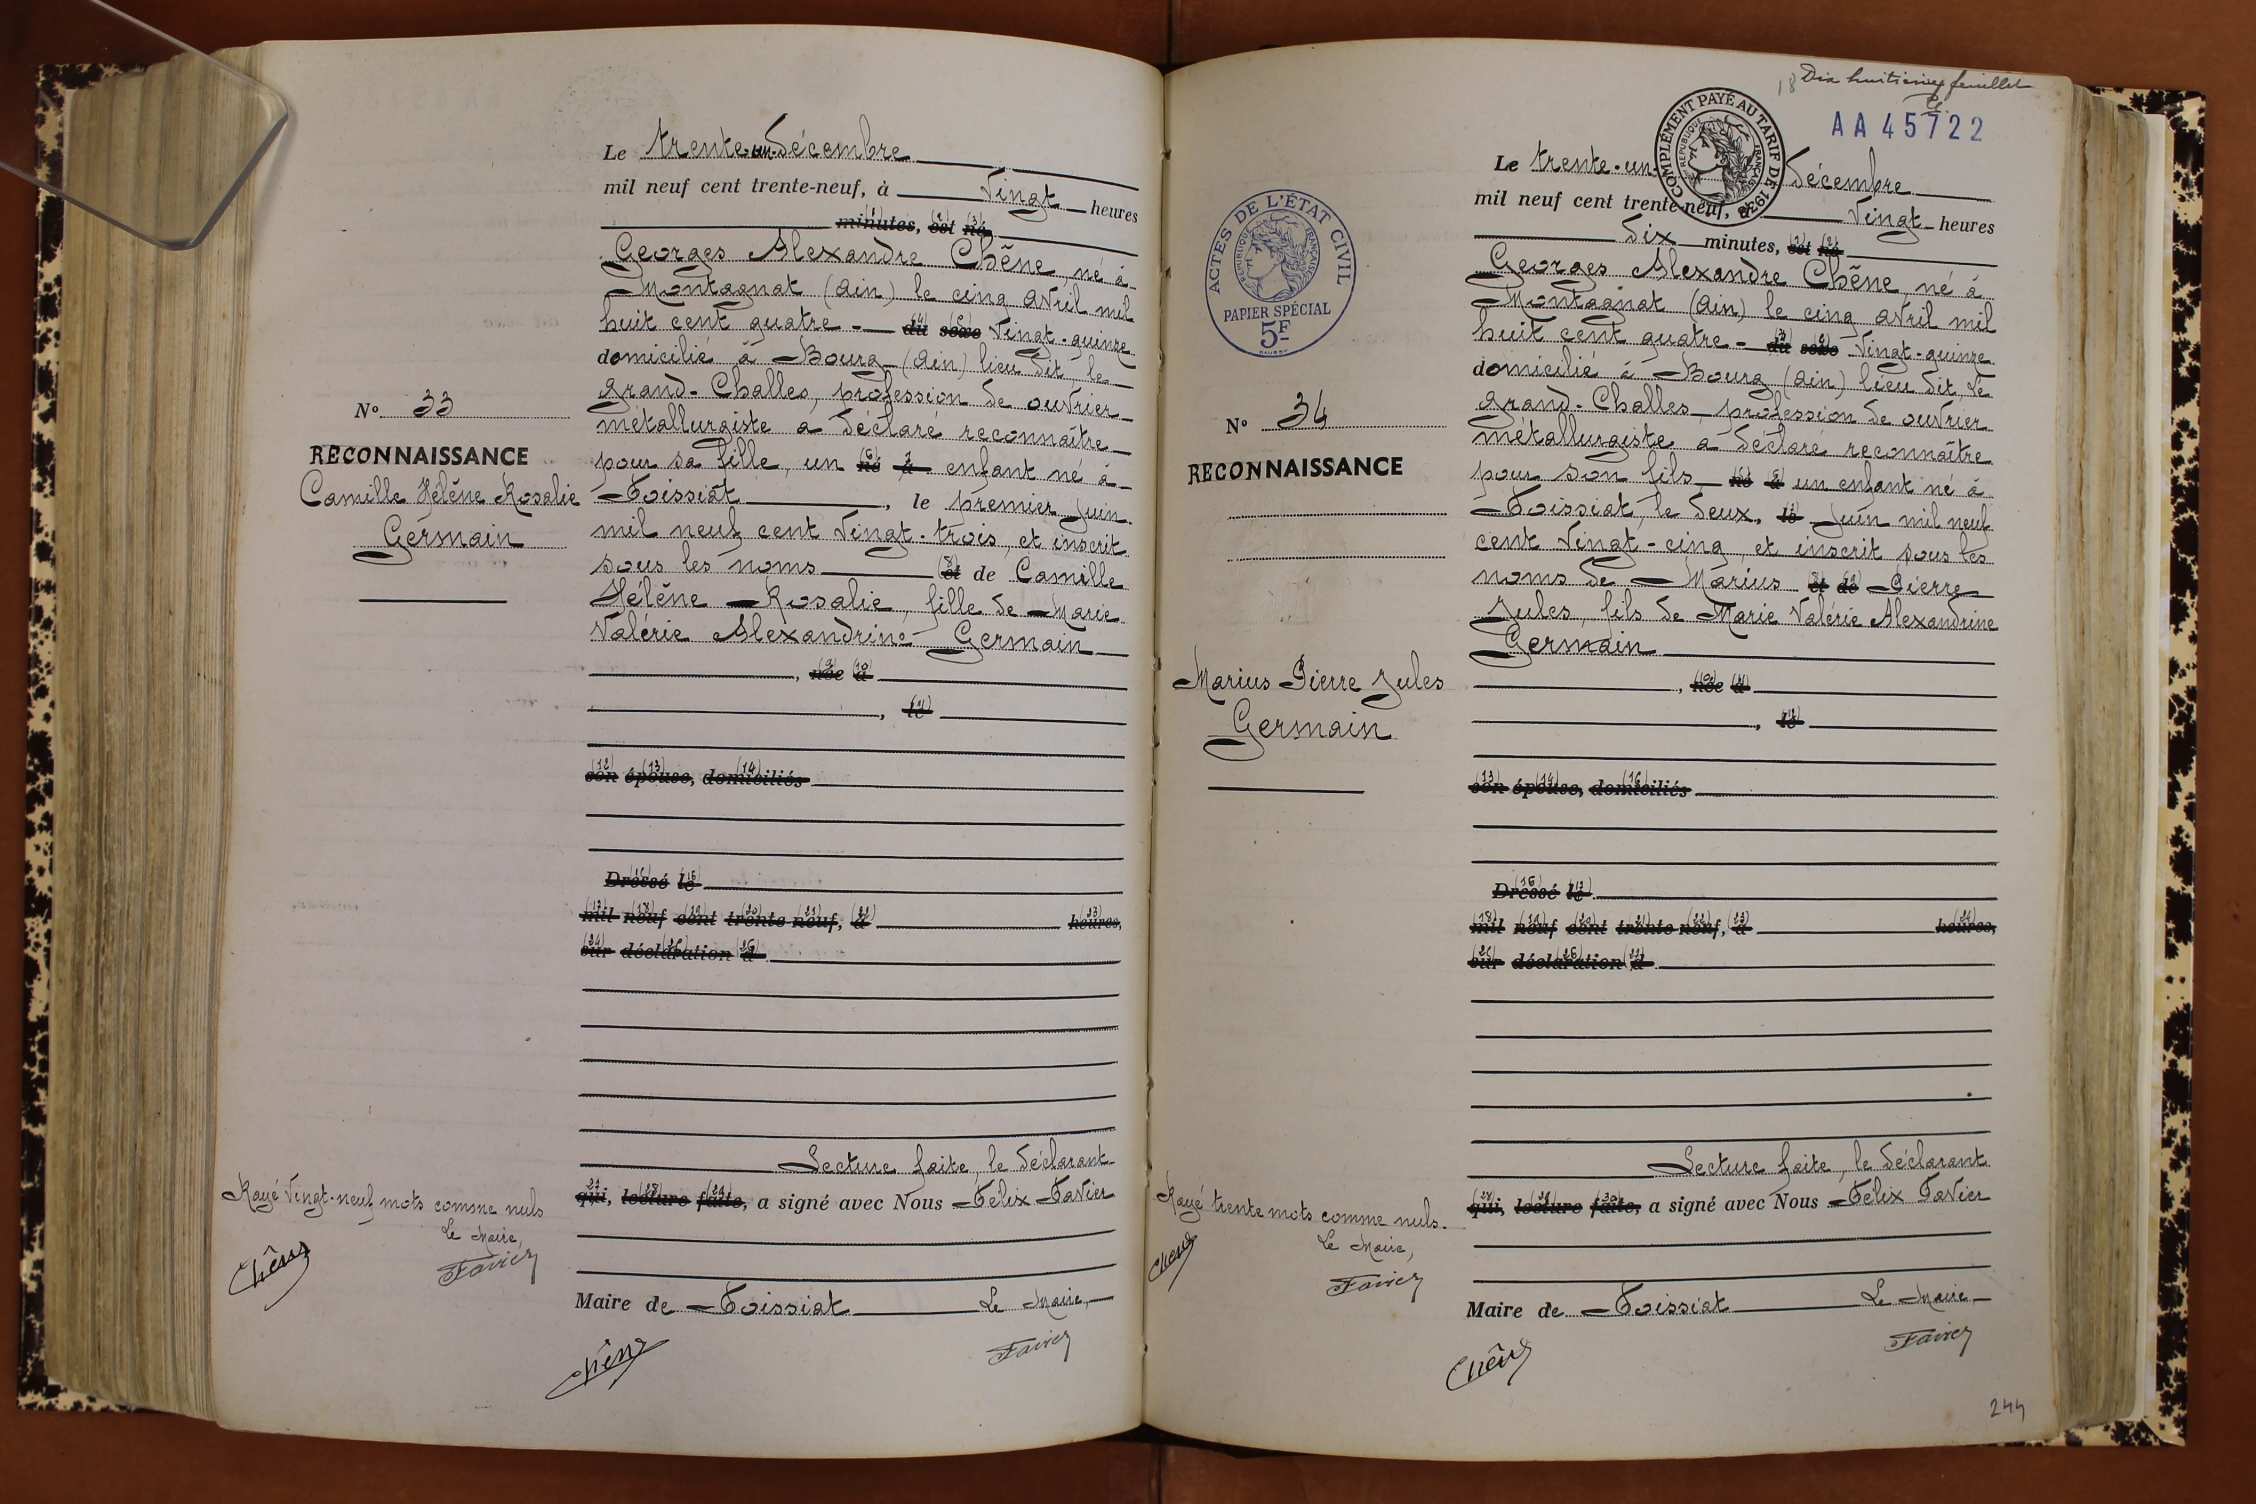 Le trente-un décembre
mil neuf cent trente-neuf, à Vingt heures
minutes, est né
Georges Alexandre Chêne, né à
Montagnat (Ain) le cinq Avril mil
huit cent quatre - du sexe Vingt-quinze
domicilié à Bourg (Ain) lieu dit, le
Grand-Challes, profession de ouvrier
métallurgiste a déclaré reconnaître
pour sa fille, un né à enfant né à
Foissiat, le premier Juin
mil neuf cent Vingt-trois, et inscrit
sous les noms et de Camille
Hélène Rosalie, fille de Marie
Valérie Alexandrine Germain
, née à
, le
son épouse, domiciliés
Dressé le
mil neuf cent trente-neuf, à heures,
sur déclaration d
Lecture faite, le déclarant
qui, lecture faite, a signé avec Nous Félix Favier
Maire de Foissiat Le Maire,
Chêne
Favier
No 33
RECONNAISSANCE
Camille Hélène Rosalie
Germain
Rayé Vingt-neuf mots comme nuls
Le Maire,
Chêne
Favier
18 Dix huitième feuillet
AA 45722
COMPLÉMENT PAYÉ AU TARIF DE 1938
RÉPUBLIQUE FRANÇAISE
Le trente-un décembre
mil neuf cent trente-neuf, à Vingt heures
dix minutes, est né
Georges Alexandre Chêne, né à
Montagnat (Ain) le cinq Avril mil
huit cent quatre - du sexe Vingt-quinze
domicilié à Bourg (Ain) lieu dit, le
Grand-Challes profession de ouvrier
métallurgiste a déclaré reconnaître
pour son fils né à un enfant né à
Foissiat, le deux, le Juin mil neuf
cent Vingt-cinq, et inscrit sous les
noms de Marius et de Pierre
Jules, fils de Marie Valérie Alexandrine
Germain
, née à
, le
son épouse, domiciliés
Dressé le
mil neuf cent trente-neuf, à heures,
sur déclaration d
Lecture faite, le déclarant
qui, lecture faite, a signé avec Nous Félix Favier
Maire de Foissiat Le Maire
Chêne
Favier
ACTES DE L'ÉTAT CIVIL
RÉPUBLIQUE FRANÇAISE
PAPIER SPÉCIAL
5F
No 34
RECONNAISSANCE
Marius Pierre Jules
Germain
Rayé trente mots comme nuls.
Le Maire,
Chêne
Favier
244